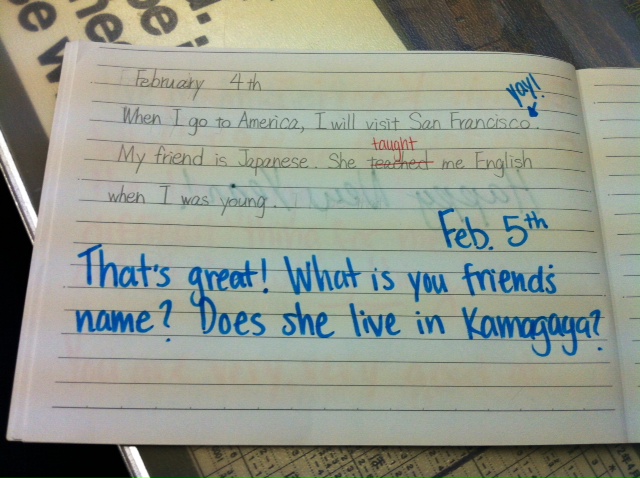 February 4th
yay!
When I go to America, I will visit San Francisco.
taught
My friend is Japanese. She teached me English
when I was young.
Feb. 5th
That's great! What is you friend's
name? Does she live in Kamagaga?